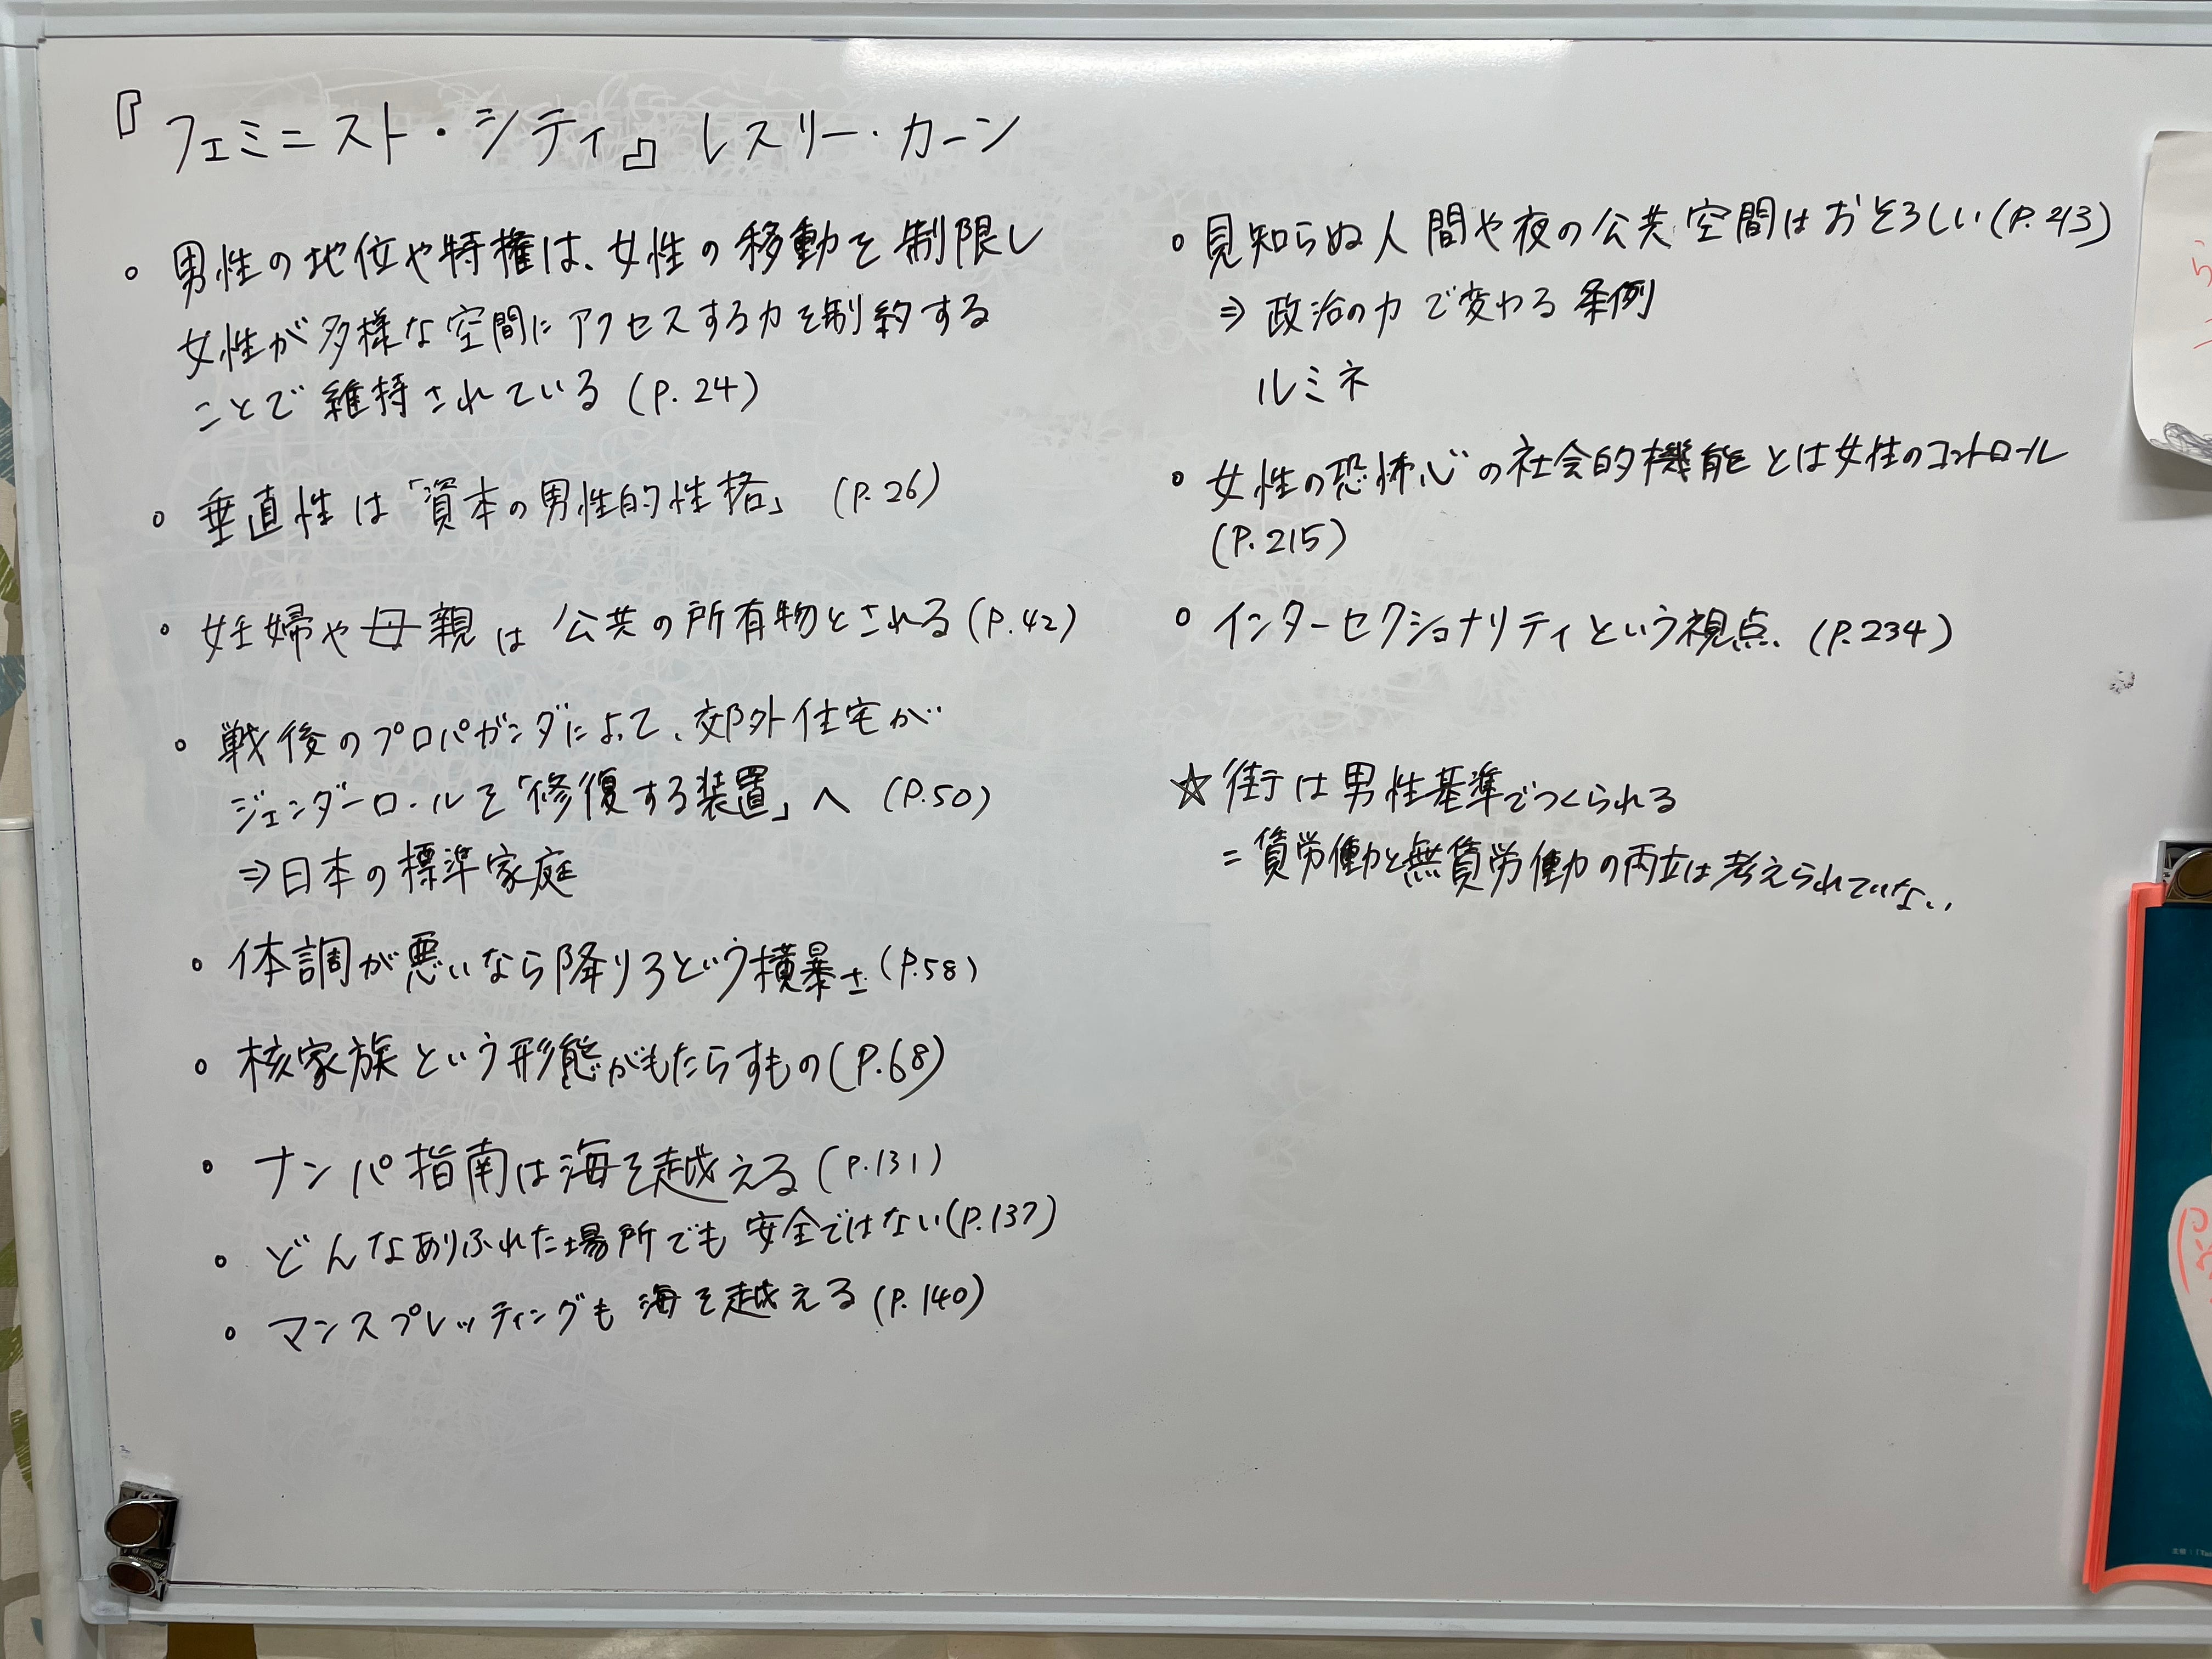 『フェミニスト・シティ』レスリー・カーン
○ 男性の地位や特権は、女性の移動を制限し
女性が多様な空間にアクセスする力を制約する
ことで維持されている (P.24)
○ 垂直性は「資本の男性的性格」 (P.26)
○ 妊婦や母親は公共の所有物とされる (P.42)
○ 戦後のプロパガンダによって、郊外住宅が
ジェンダーロールを「修復する装置」へ (P.50)
⇒日本の標準家庭
○ 体調が悪いなら降りろという横暴さ (P.58)
○ 核家族という形態がもたらすもの (P.68)
○ ナンパ指南は海を越える (P.131)
○ どんなありふれた場所でも安全ではない (P.137)
○ マンスプレッティングも海を越える (P.140)
○ 見知らぬ人間や夜の公共空間はおそろしい (P.213)
⇒ 政治の力で変わる 条例
ルミネ
○ 女性の恐怖心の社会的機能とは女性のコントロール
(P.215)
○ インターセクショナリティという視点、(P.234)
☆ 街は男性基準でつくられる
= 賃労働と無賃労働の両立は考えられていない